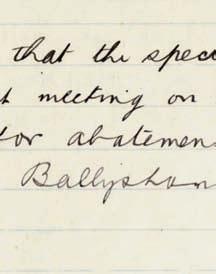 that the spec
meeting on
for abatemen
Ballyshan